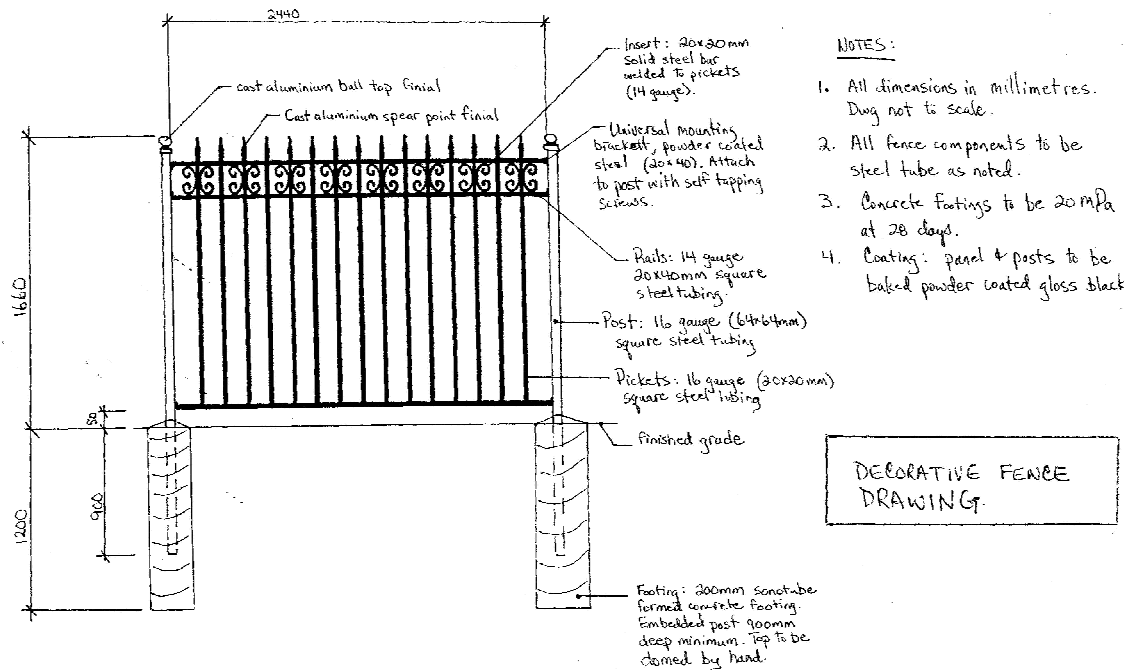 2440
cast aluminium ball top finial
Cast aluminium spear point finial
Insert: 20x20mm
solid steel bar
welded to pickets
(14 gauge).
Universal mounting
brackett, powder coated
steel (20x40). Attach
to post with self tapping
screws.
Rails: 14 gauge
20x40mm square
steel tubing.
Post: 16 gauge (64x64mm)
square steel tubing
Pickets: 16 gauge (20x20mm)
square steel tubing
finished grade
Footing: 200mm sonotube
formed concrete footing.
Embedded post 900mm
deep minimum. Top to be
domed by hand.
1660
50
900
1200
NOTES:
1. All dimensions in millimetres.
Dwg not to scale.
2. All fence components to be
steel tube as noted.
3. Concrete footings to be 20 mPa
at 28 days.
4. Coating: panel & posts to be
baked powder coated gloss black
DECORATIVE FENCE
DRAWING.